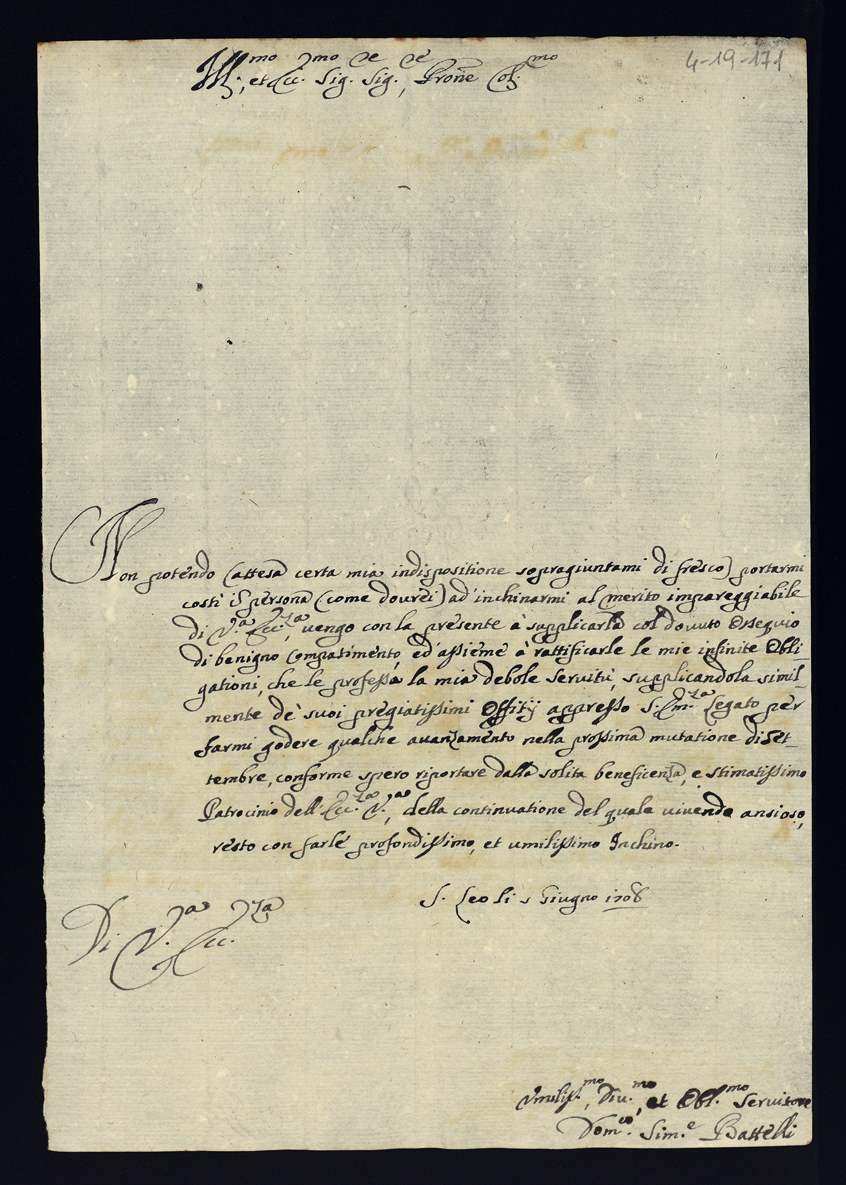 4-19-171
Ill.mo, et Ecc.mo Sig.re Sig.re, Prone Col.mo
Non potendo (attesa certa mia indispositione sopragiuntami di fresco) portarmi
costì in persona (come dovrei) ad inchinarmi al merito impareggiabile
di V.a Ecc.za, vengo con la presente à supplicarla col dovuto ossequio
di benigno compatimento, ed' assieme à rattificarle le mie infinite Obli-
gationi, che le professa la mia debole servitù, supplicandola simil-
mente de' suoi pregiatissimi Offitij appresso S. Em.za Legato per
farmi godere qualche avanzamento nella prossima mutatione di Set-
tembre, conforme spero riportare dalla solita beneficenza, e stimatissimo
Patrocinio dell' Ecc.za V.a, della continuatione del quale vivendo ansioso,
resto con farle profondissimo, et umilissimo Inchino.
S. Leo li 5 Giugno 1708
Di V.a Ecc.za
Umiliss.mo, Div.mo, et Obl.mo Servitore
Dom.co Sim.e Battelli